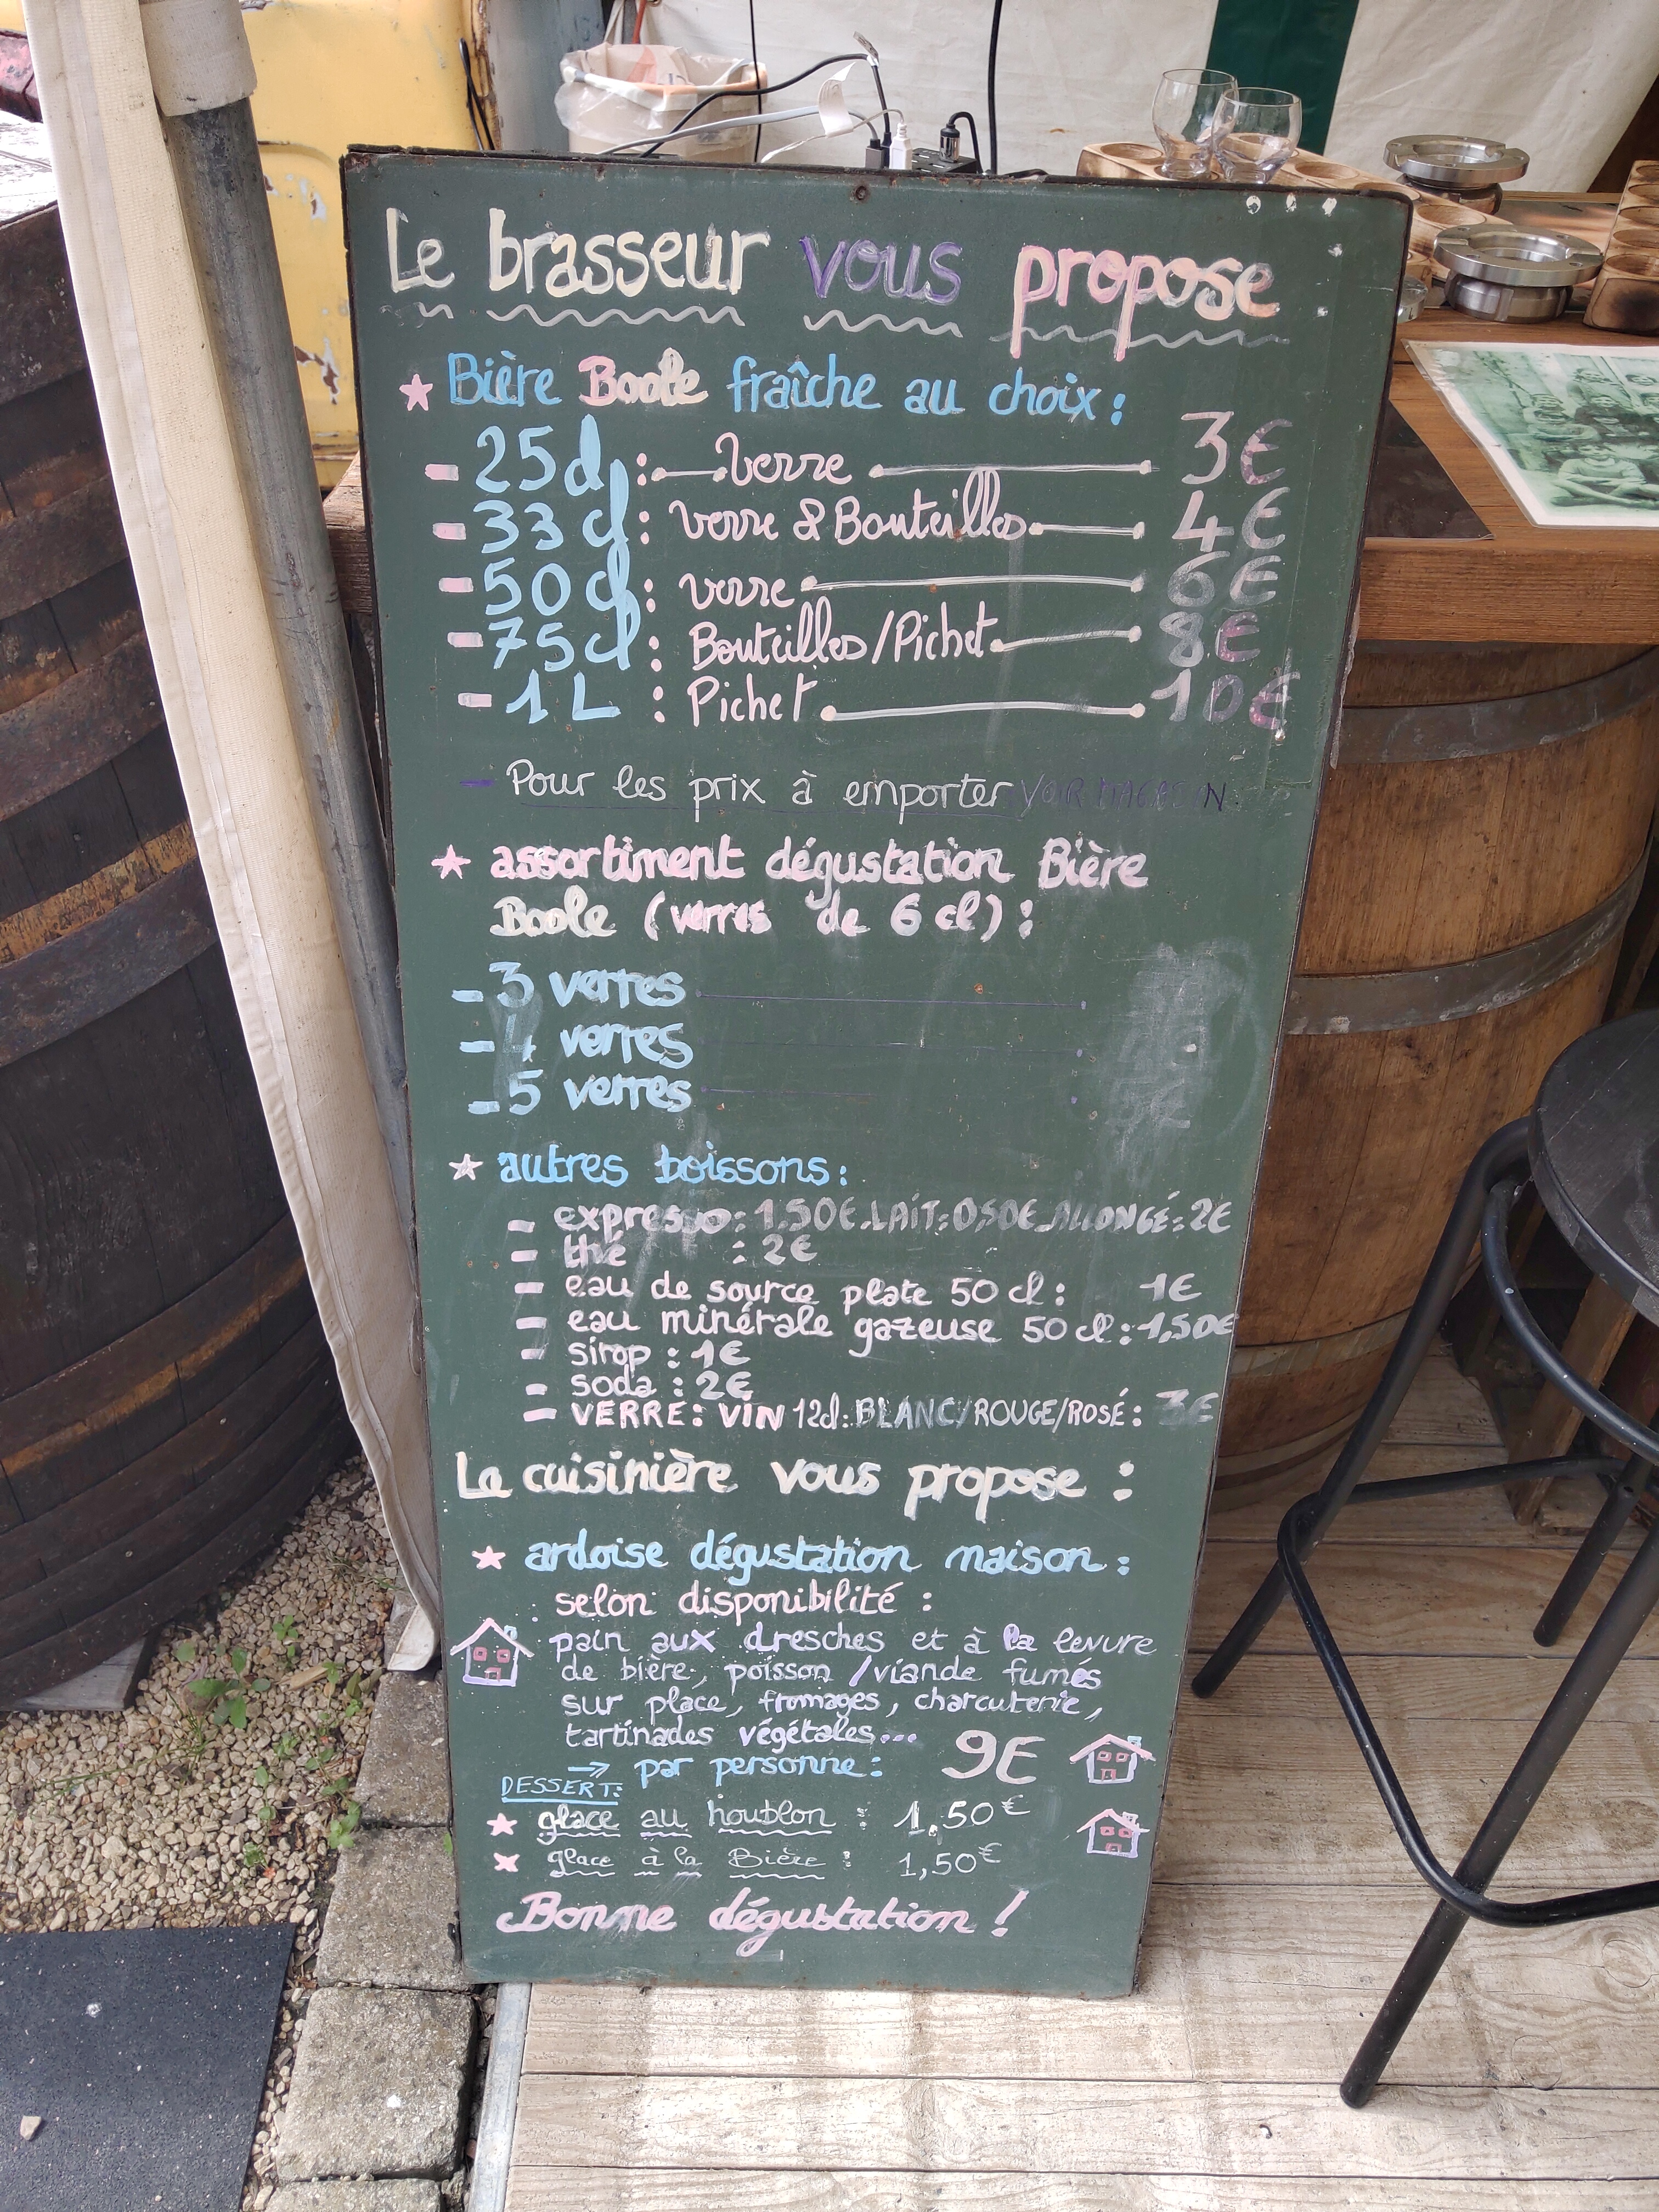 Le brasseur vous propose
Bière Boole fraîche au choix :
- 25 cl : verre 3€
- 33 cl : verre & Bouteilles 4€
- 50 cl : verre 6€
- 75 cl : Bouteilles/Pichet 8€
- 1 L : Pichet 10€
- Pour les prix à emporter VOIR MAGASIN
assortiment dégustation Bière
Boole (verres de 6 cl) :
- 3 verres
- 4 verres
- 5 verres
autres boissons :
- expresso : 1,50€. LAIT : 0,50€. ALLONGÉ : 2€
- thé : 2€
- eau de source plate 50 cl : 1€
- eau minérale gazeuse 50 cl : 1,50€
- sirop : 1€
- soda : 2€
- VERRE : VIN 12cl : BLANC/ROUGE/ROSÉ : 3€
La cuisinière vous propose :
ardoise dégustation maison :
selon disponibilité :
pain aux dresches et à la levure
de bière, poisson / viande fumés
sur place, fromages, charcuterie,
tartinades végétales...
→ par personne : 9€
DESSERT :
glace au houblon : 1,50€
glace à la Bière : 1,50€
Bonne dégustation !